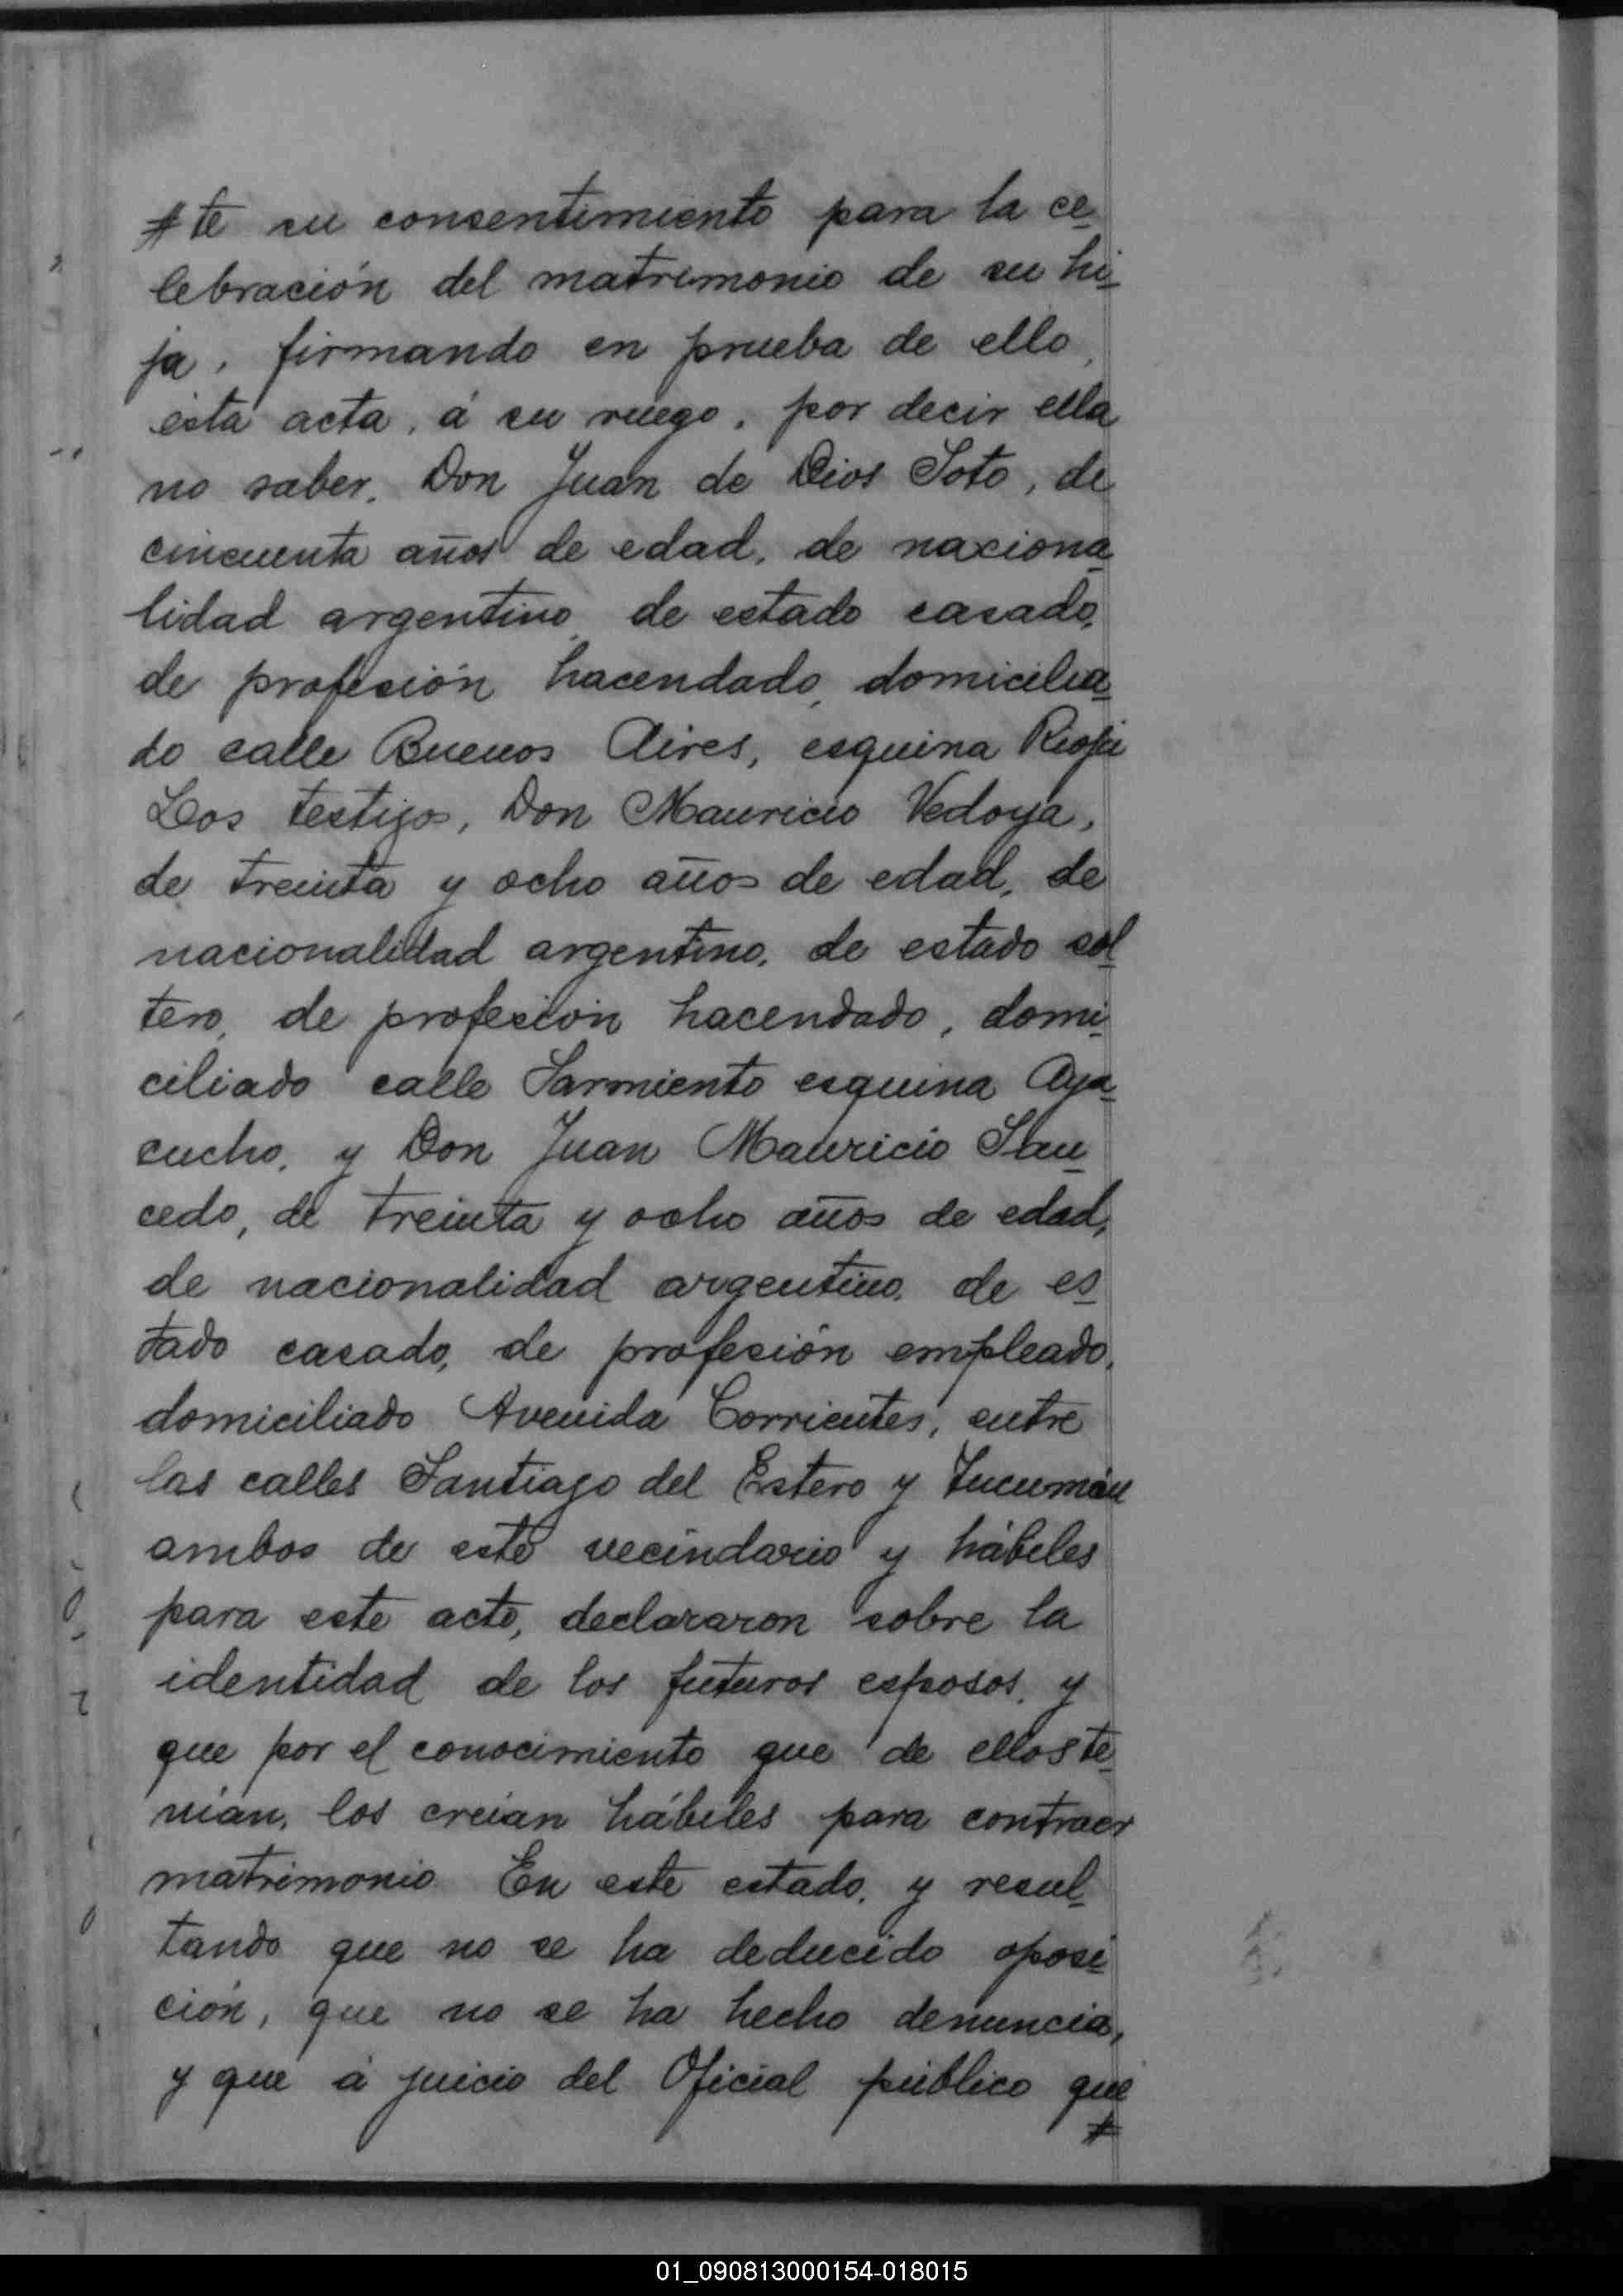 # te su consentimiento para la ce-
lebración del matrimonio de su hi-
ja, firmando en prueba de ello,
esta acta, á su ruego, por decir ella
no saber, Don Juan de Dios Soto, de
cincuenta años de edad, de naciona-
lidad argentino, de estado casado,
de profesión hacendado, domicilia-
do calle Buenos Aires, esquina Rioja
Los testigos, Don Mauricio Vedoya,
de treinta y ocho años de edad, de
nacionalidad argentino, de estado sol-
tero, de profesión hacendado, domi-
ciliado calle Sarmiento esquina Aya-
cucho, y Don Juan Mauricio Sau-
cedo, de treinta y ocho años de edad,
de nacionalidad argentino, de es-
tado casado, de profesión empleado,
domiciliado Avenida Corrientes, entre
las calles Santiago del Estero y Tucumán
ambos de este vecindario y hábiles
para este acto, declararon sobre la
identidad de los futuros esposos, y
que por el conocimiento que de ellos te-
nían, los creían hábiles para contraer
matrimonio. En este estado, y resul-
tando que no se ha deducido oposi-
ción, que no se ha hecho denuncia,
y que á juicio del Oficial público que
#
01_090813000154-018015